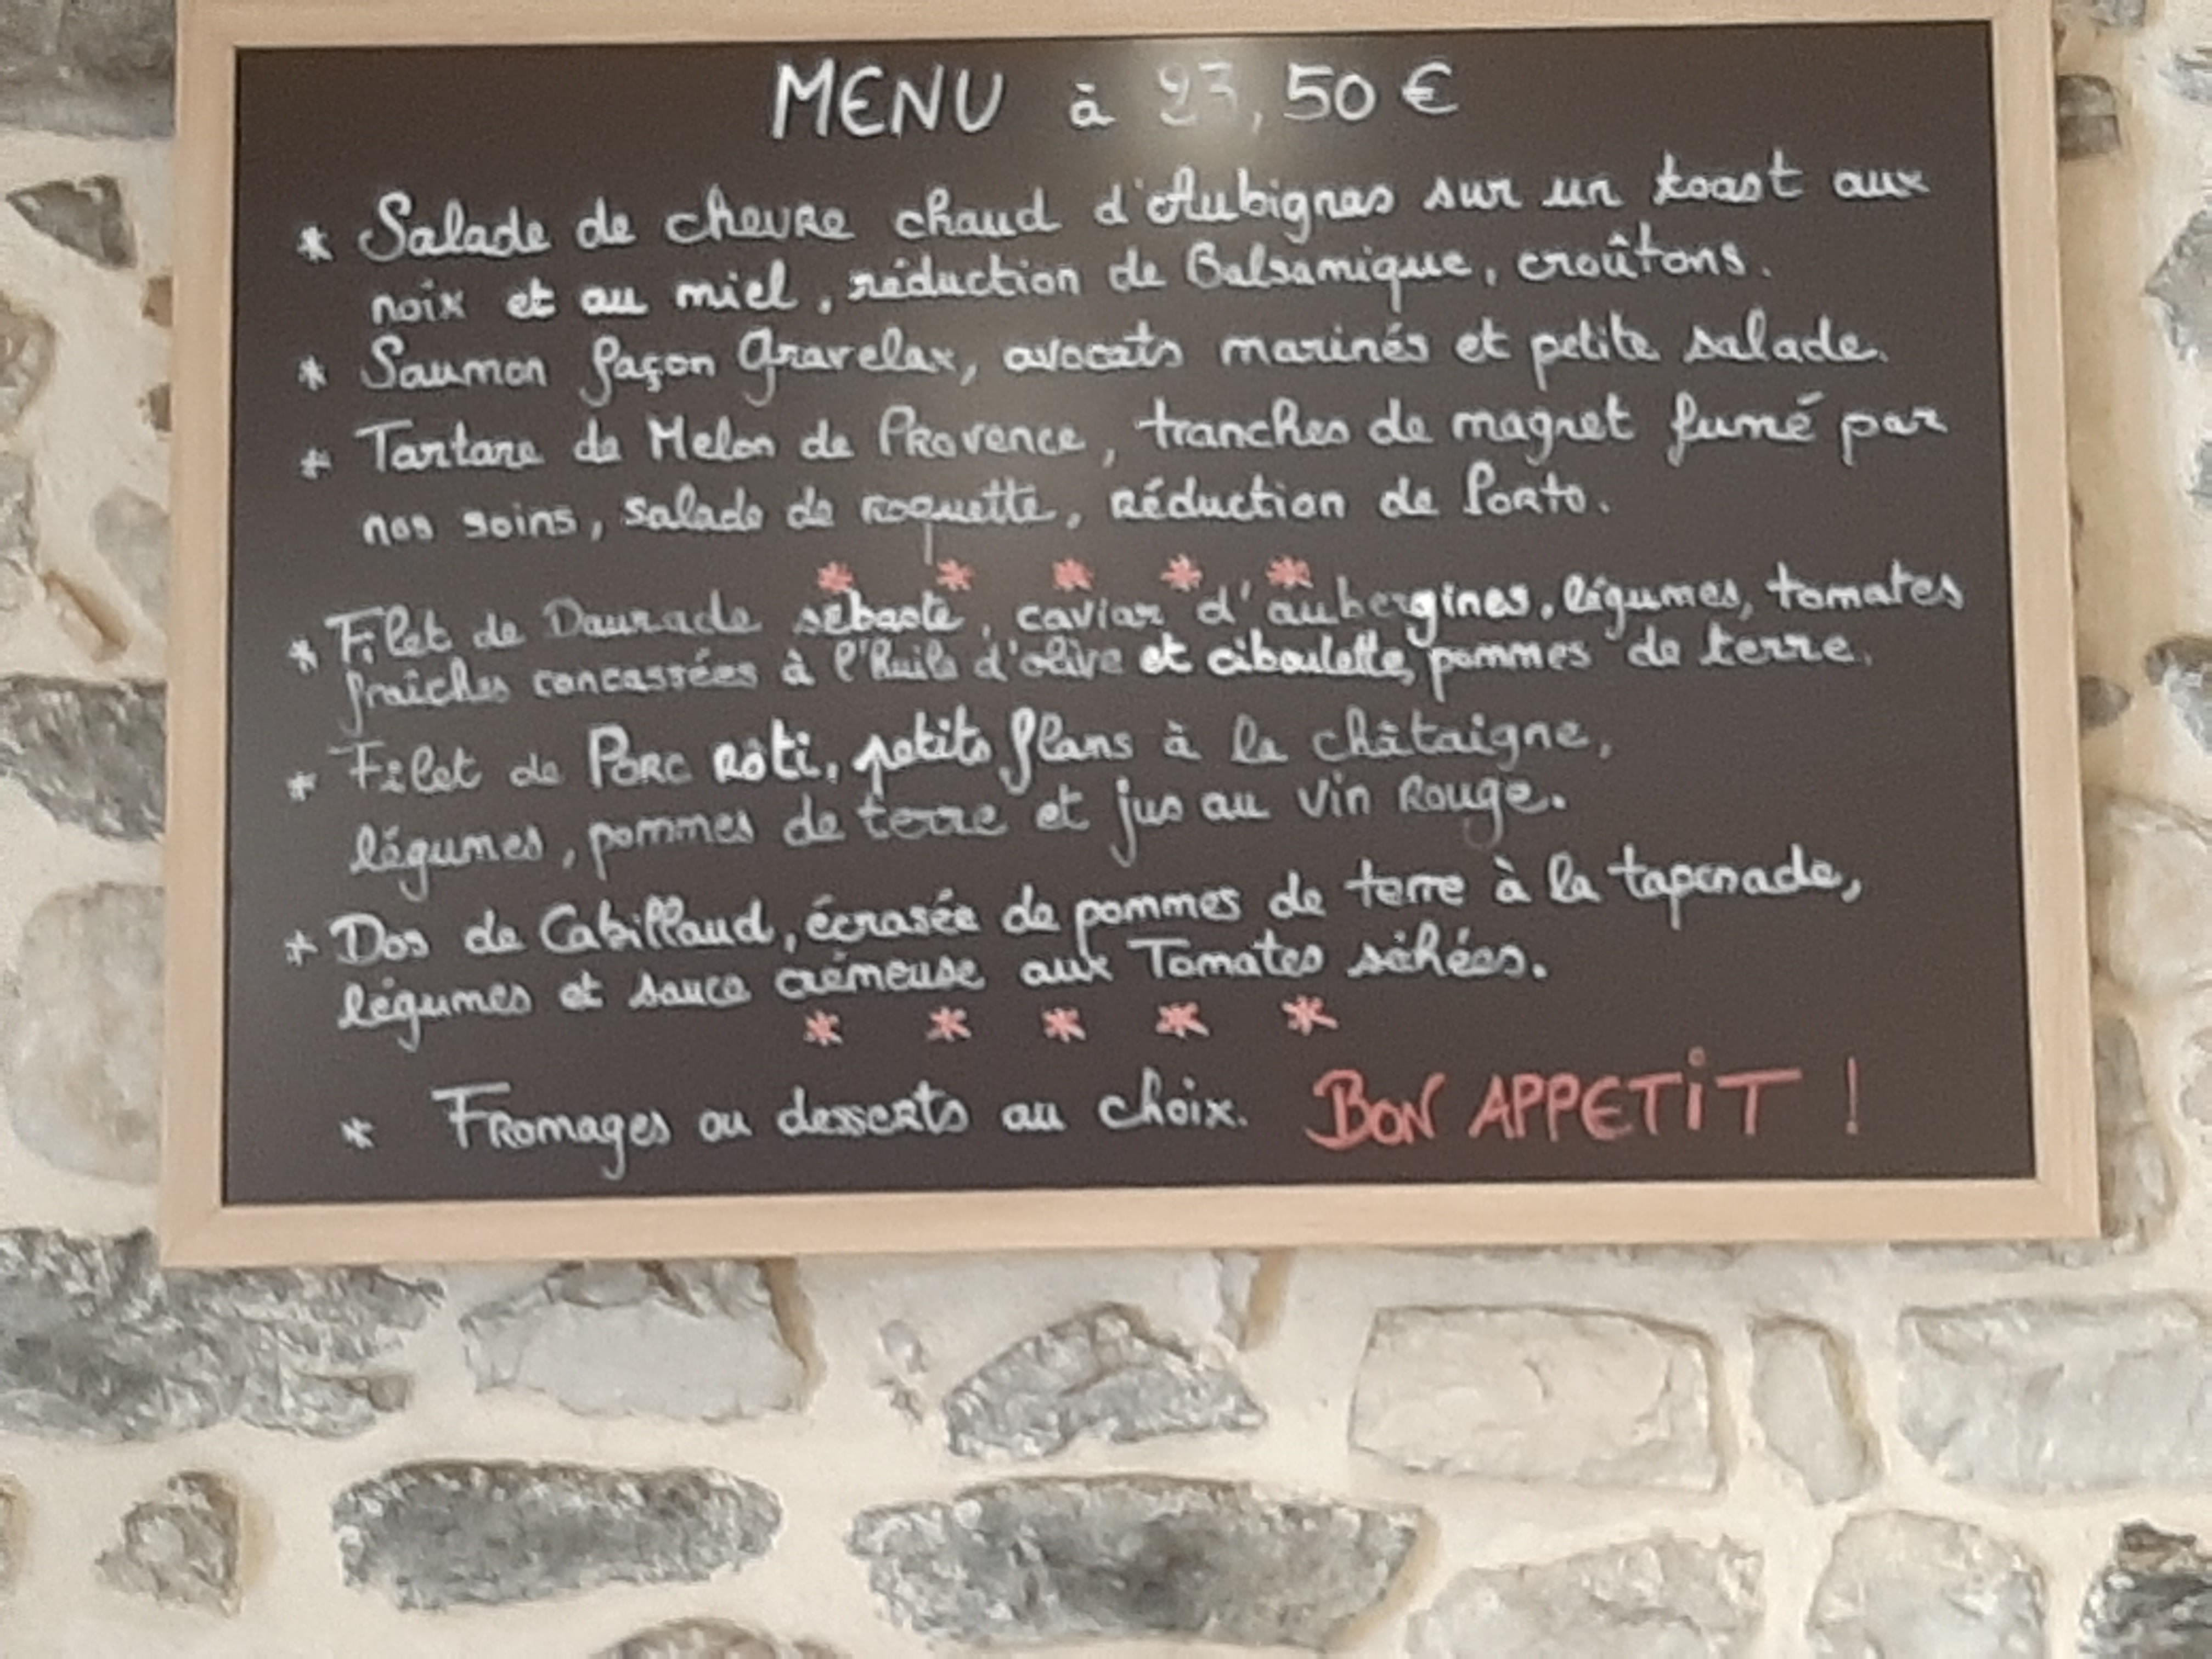 MENU à 23,50 €
* Salade de chevre chaud d'Aubignas sur un toast aux
noix et au miel, réduction de Balsamique, croûtons.
* Saumon façon Gravelax, avocats marinés et petite salade.
* Tartare de Melon de Provence, tranches de magret fumé par
nos soins, salade de roquette, réduction de Porto.
* * * * *
* Filet de Daurade sébaste, caviar d'aubergines, légumes, tomates
fraîches concassées à l'huile d'olive et ciboulette, pommes de terre.
* Filet de Porc Rôti, petits flans à la châtaigne,
légumes, pommes de terre et jus au Vin Rouge.
* Dos de Cabillaud, écrasée de pommes de terre à la tapenade,
légumes et sauce crémeuse aux Tomates séhées.
* * * * *
* Fromages ou desserts au choix. BON APPETIT !